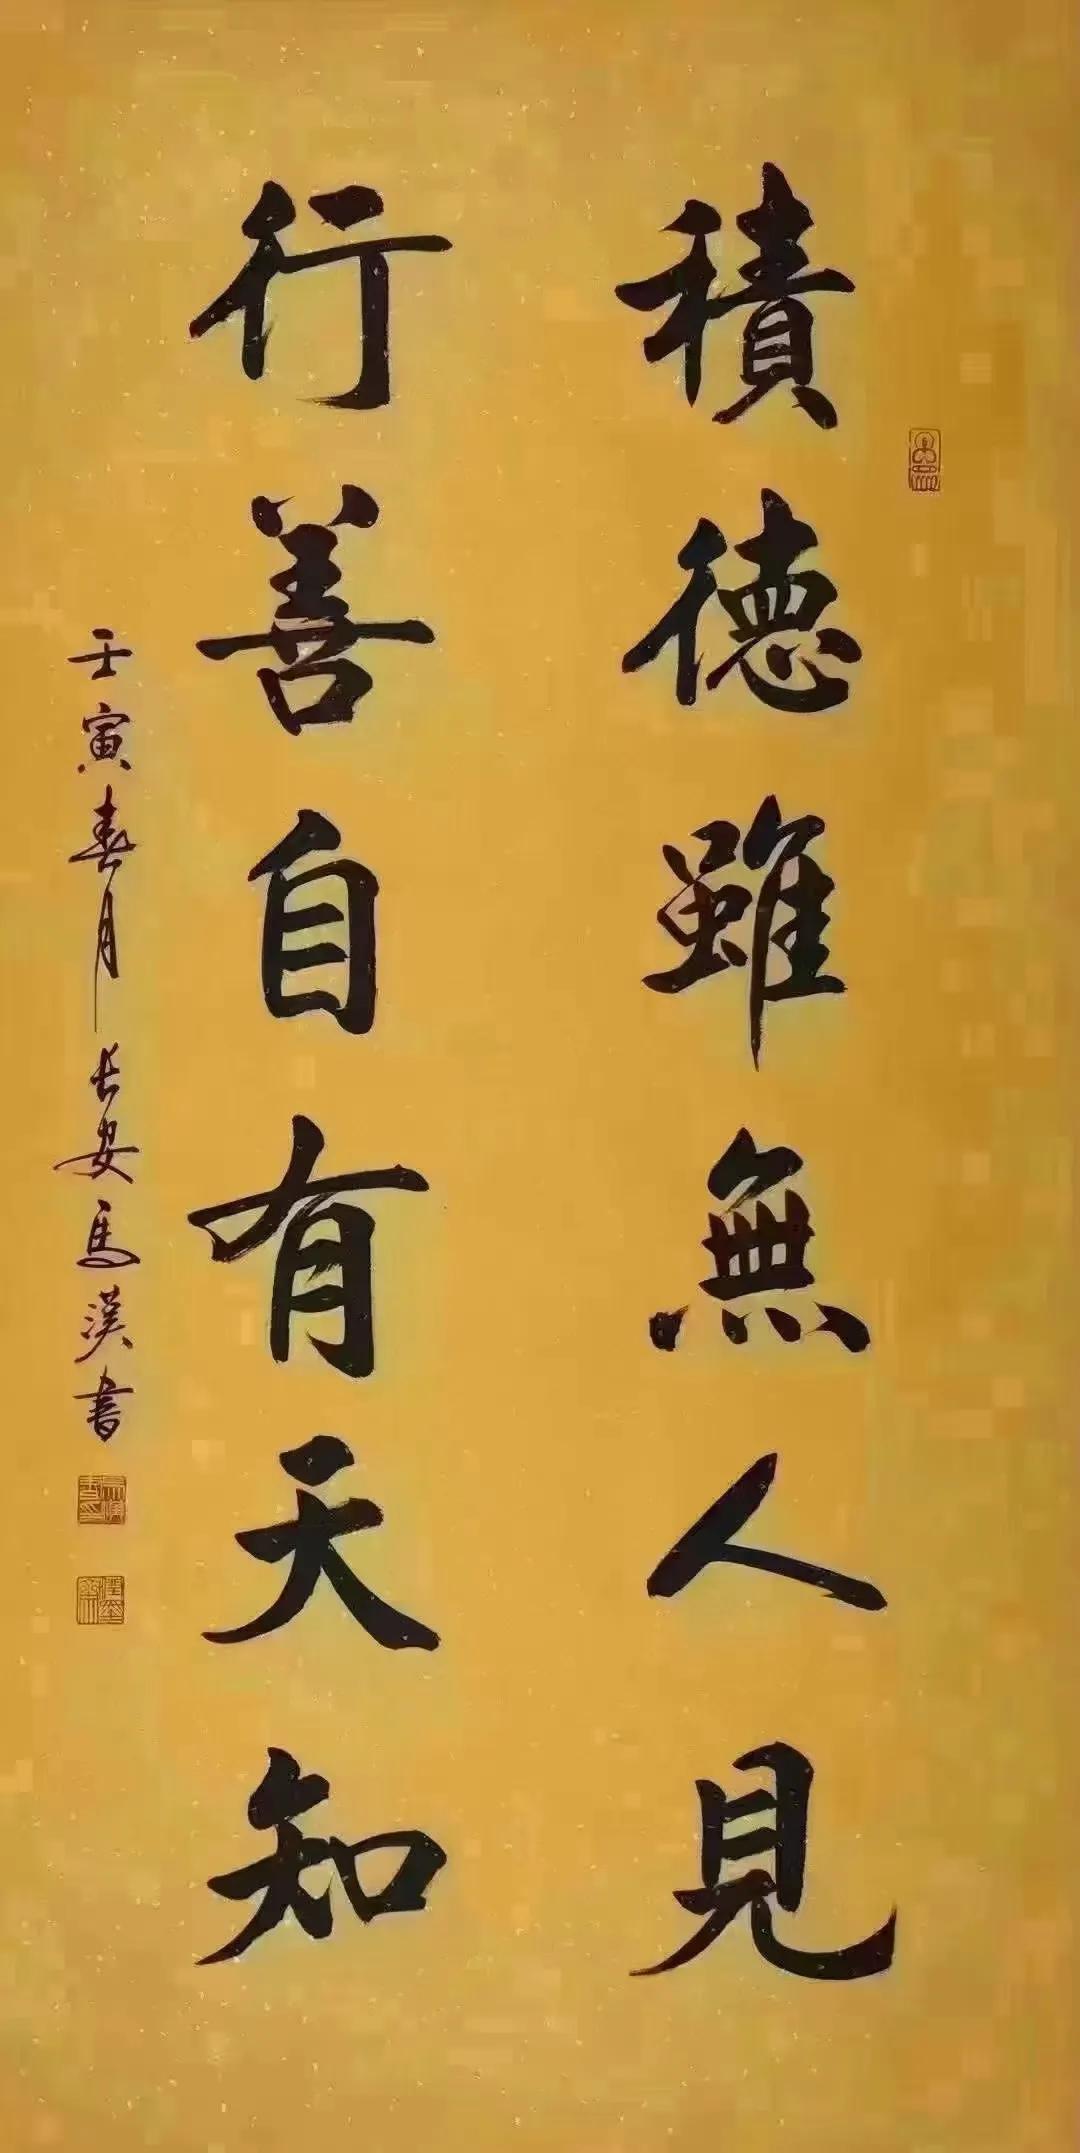 積德雖無人見
行善自有天知
壬寅春月长安馬漢書